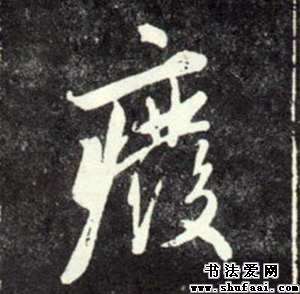 癈
书法爱网
www.shufaai.com